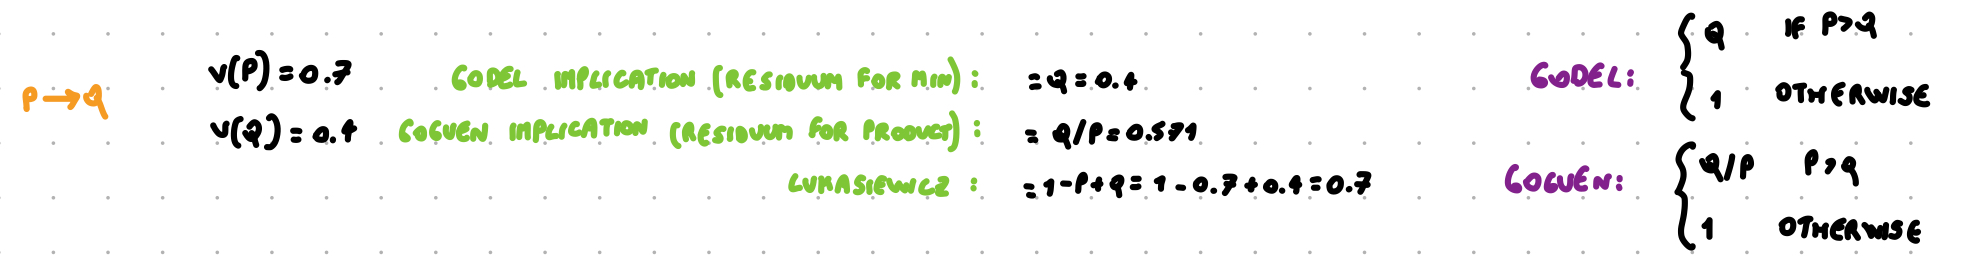 P → Q
v(P) = 0.7
v(Q) = 0.4
GODEL IMPLICATION (RESIDUUM FOR MIN) : = Q = 0.4
GOGUEN IMPLICATION (RESIDUUM FOR PRODUCT) : = Q/P = 0.571
LUKASIEWICZ : = 1 - P + Q = 1 - 0.7 + 0.4 = 0.7
GODEL: { Q IF P > Q
1 OTHERWISE
GOGUEN: { Q/P P > Q
1 OTHERWISE